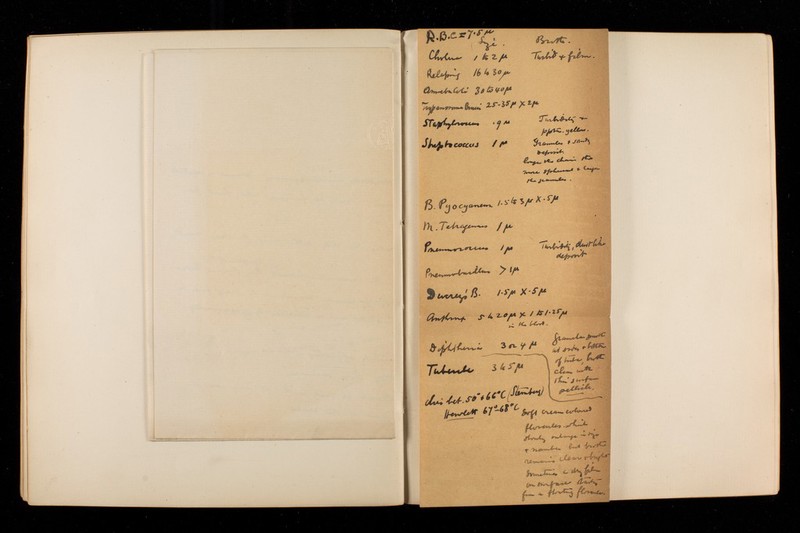 R.B.C = 7.5 µ
Size. Broth.
Cholera 1 to 2 µ Turbid + film.
Relapsing 16 to 30 µ
Amoeba Coli 30 to 40 µ
Trypanosoma 25-35 µ X 2 µ
Staphylococcus .9 µ Turbidity +
yellow.
Streptococcus 1 µ Granules + sandy
deposit.
longer the chain the
more + larger
the granules.
B. Pyocyaneus 1.5 to 3 µ X .5 µ
M. Tetragenus 1 µ
Pneumococcus 1 µ Turbidity, dust like
deposit
Pneumobacillus > 1 µ
Ducrey's B. 1.5 µ X .5 µ
Anthrax 5 to 20 µ X 1 to 1.25 µ
in the blood.
Diphtheria 3 or 4 µ Granular growth
at sides + bottom
of tube, broth
Tubercle 3 to 5 µ clear with
thin surface
pellicle.
dies bet. 50° + 66°C (Sternberg)
Hewlett 67°-68°C Soft cream coloured
floccules which
slowly enlarge in size
+ number but broth
remains clear + bright
Sometimes a dry film
on surface
from a floating floccule